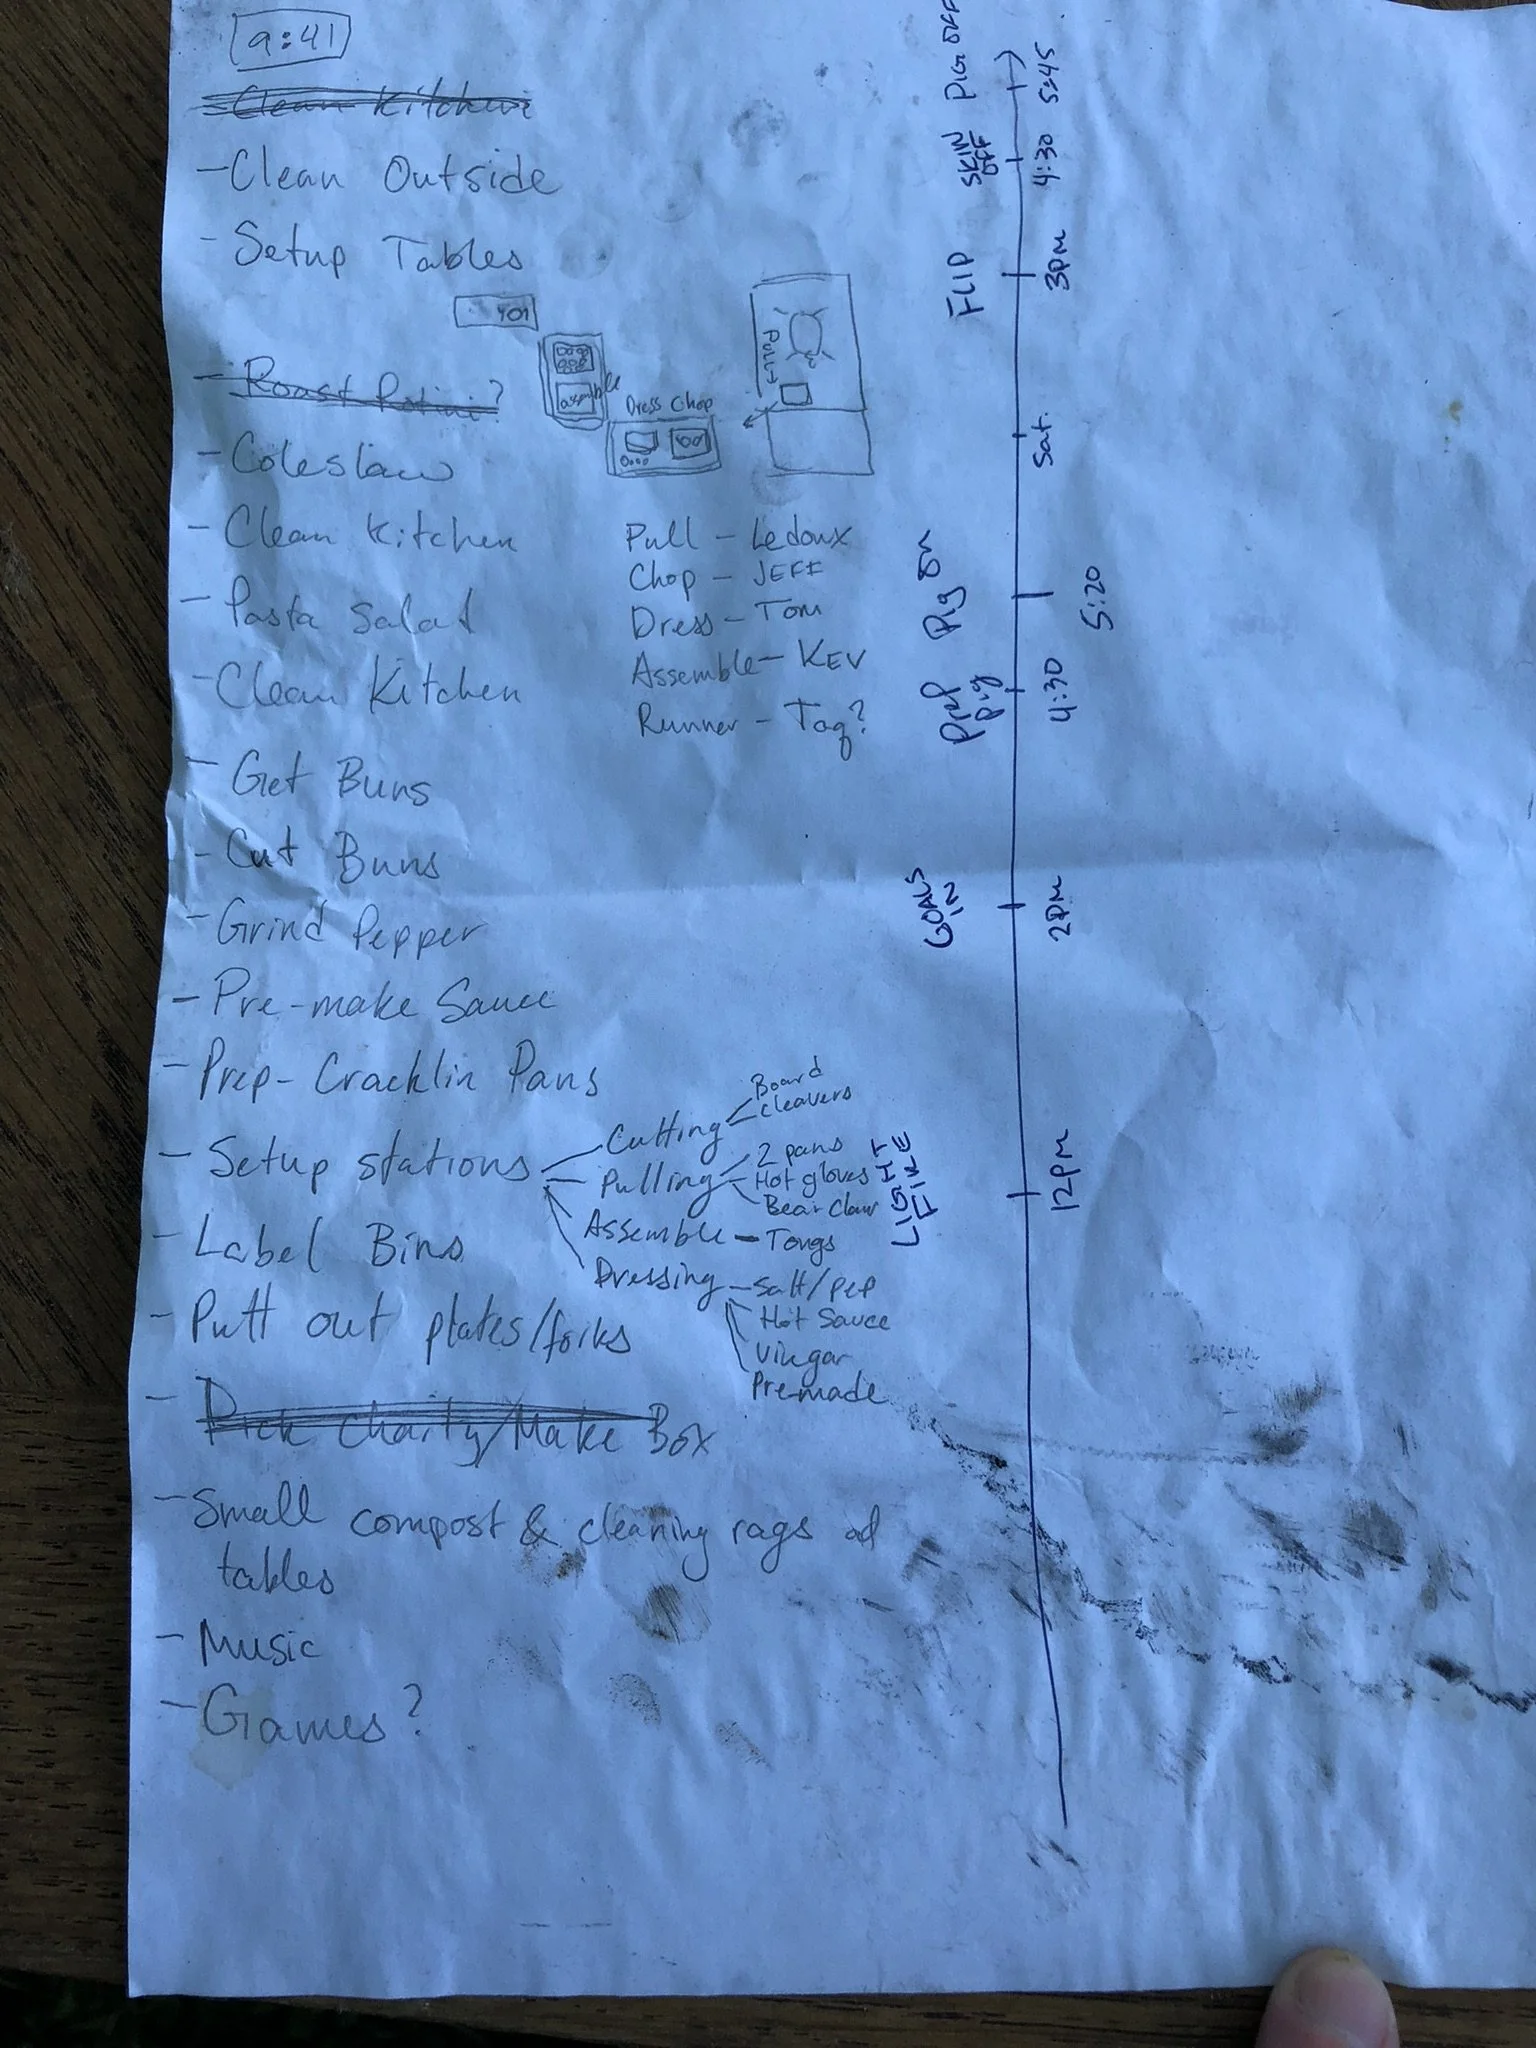 9:41
Clean Kitchen
- Clean Outside
- Setup Tables
- Roast Rotini?
- Coleslaw
- Clean Kitchen
- Pasta Salad
- Clean Kitchen
- Get Buns
- Cut Buns
- Grind Pepper
- Pre-make Sauce
- Prep-Cracklin Pans
- Setup stations
Cutting
Board
Cleavers
Pulling
2 pans
Hot gloves
Bear Claw
Assemble - Tongs
Dressing
Salt/Pep
Hot Sauce
Vinegar
Pre-made
- Label Bins
- Putt out plates/forks
- Pick Charity/Make Box
- Small compost & cleaning rags
tables
- Music
- Games?
assemble
Dress Chop
Pull - Ledoux
Chop - JEFF
Dress - Tom
Assemble - KEV
Runner - Taq?
LIGHT
FIRE
12PM
COALS
IN
2PM
Prep
pig
4:30
Pig on
5:20
Sat.
FLIP
3PM
SKIN
OFF
4:30
PIG OFF
5:45